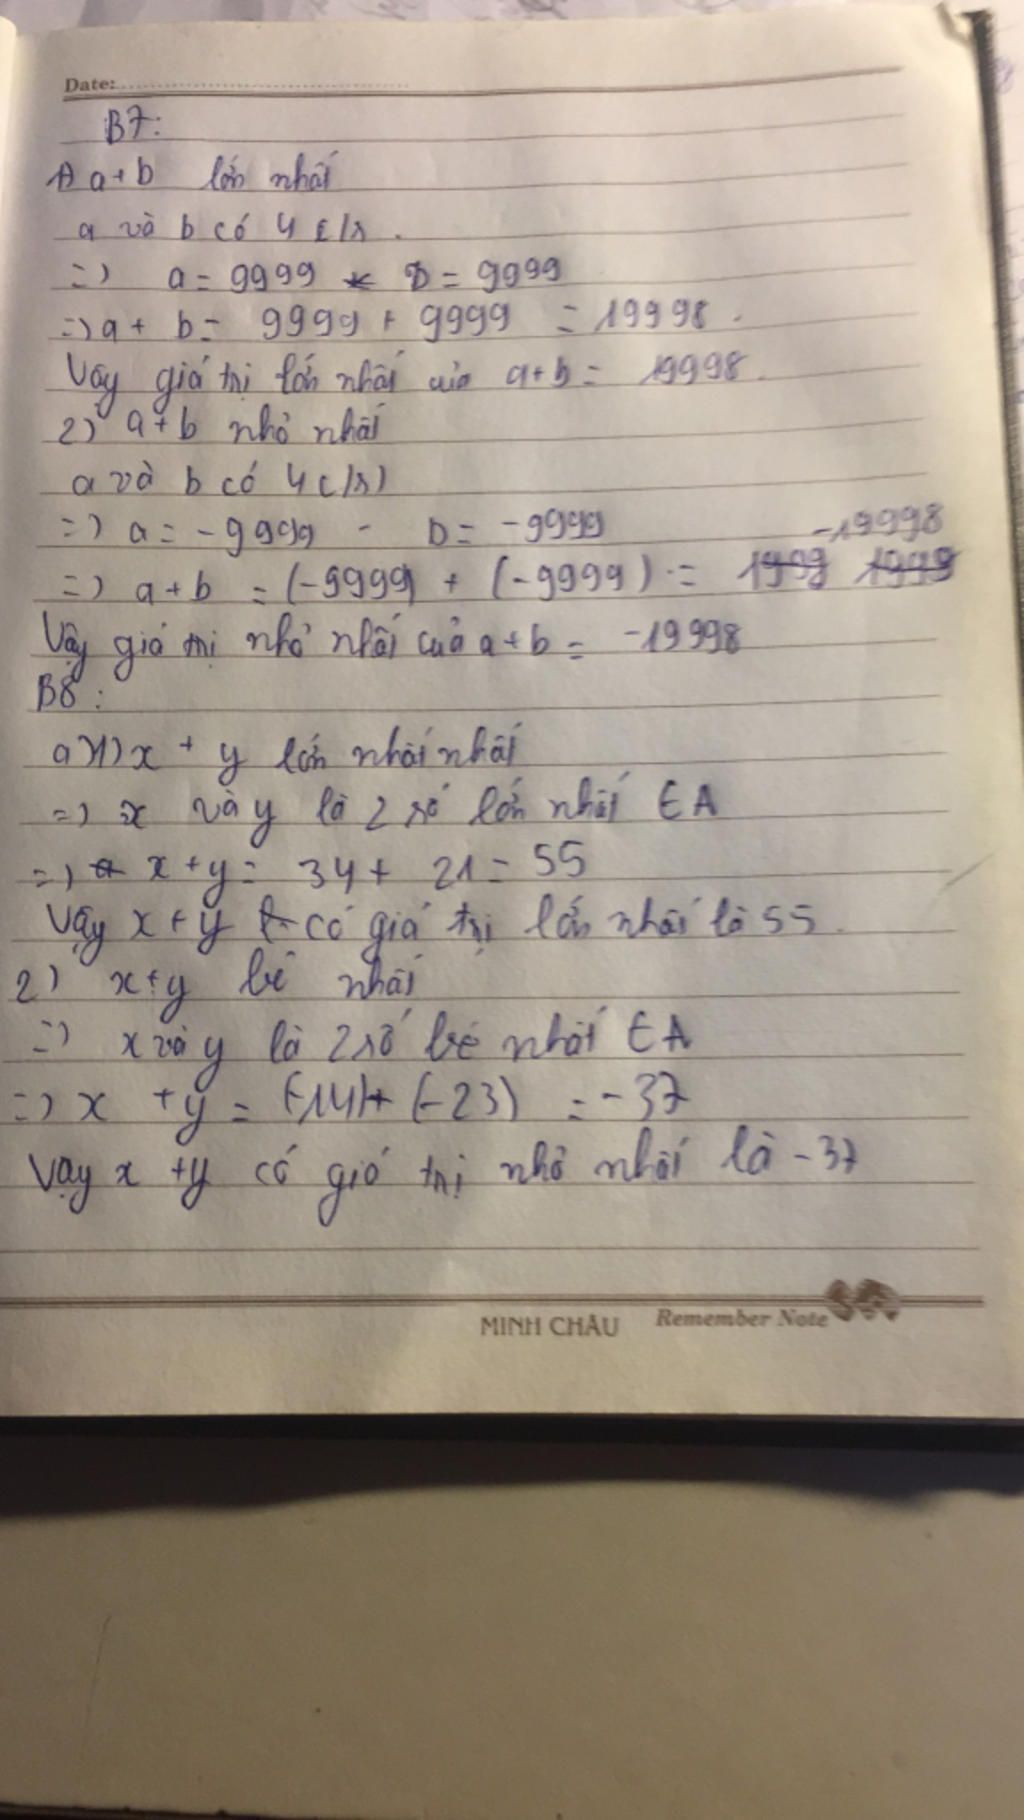 Date:
B7:
1) a+b lớn nhất
a và b có 4 c/s.
=> a = 9999 b = 9999
=> a + b = 9999 + 9999 = 19998.
Vậy giá trị lớn nhất của a+b = 19998.
2) a+b nhỏ nhất
a và b có 4 c/s)
=> a = -9999 - b = -9999
-19998
=> a+b = (-9999) + (-9999) =
Vậy giá trị nhỏ nhất của a+b = -19998
B8:
a) 1) x + y lớn nhất nhất
=> x và y là 2 số lớn nhất ∈ A
=> x+y = 34 + 21 = 55
Vậy x+y có giá trị lớn nhất là 55.
2) x+y bé nhất
=> x và y là 2 số bé nhất ∈ A
=> x + y = (-14) + (-23) = -37
Vậy x + y có giá trị nhỏ nhất là -37
MINH CHÂU Remember Note